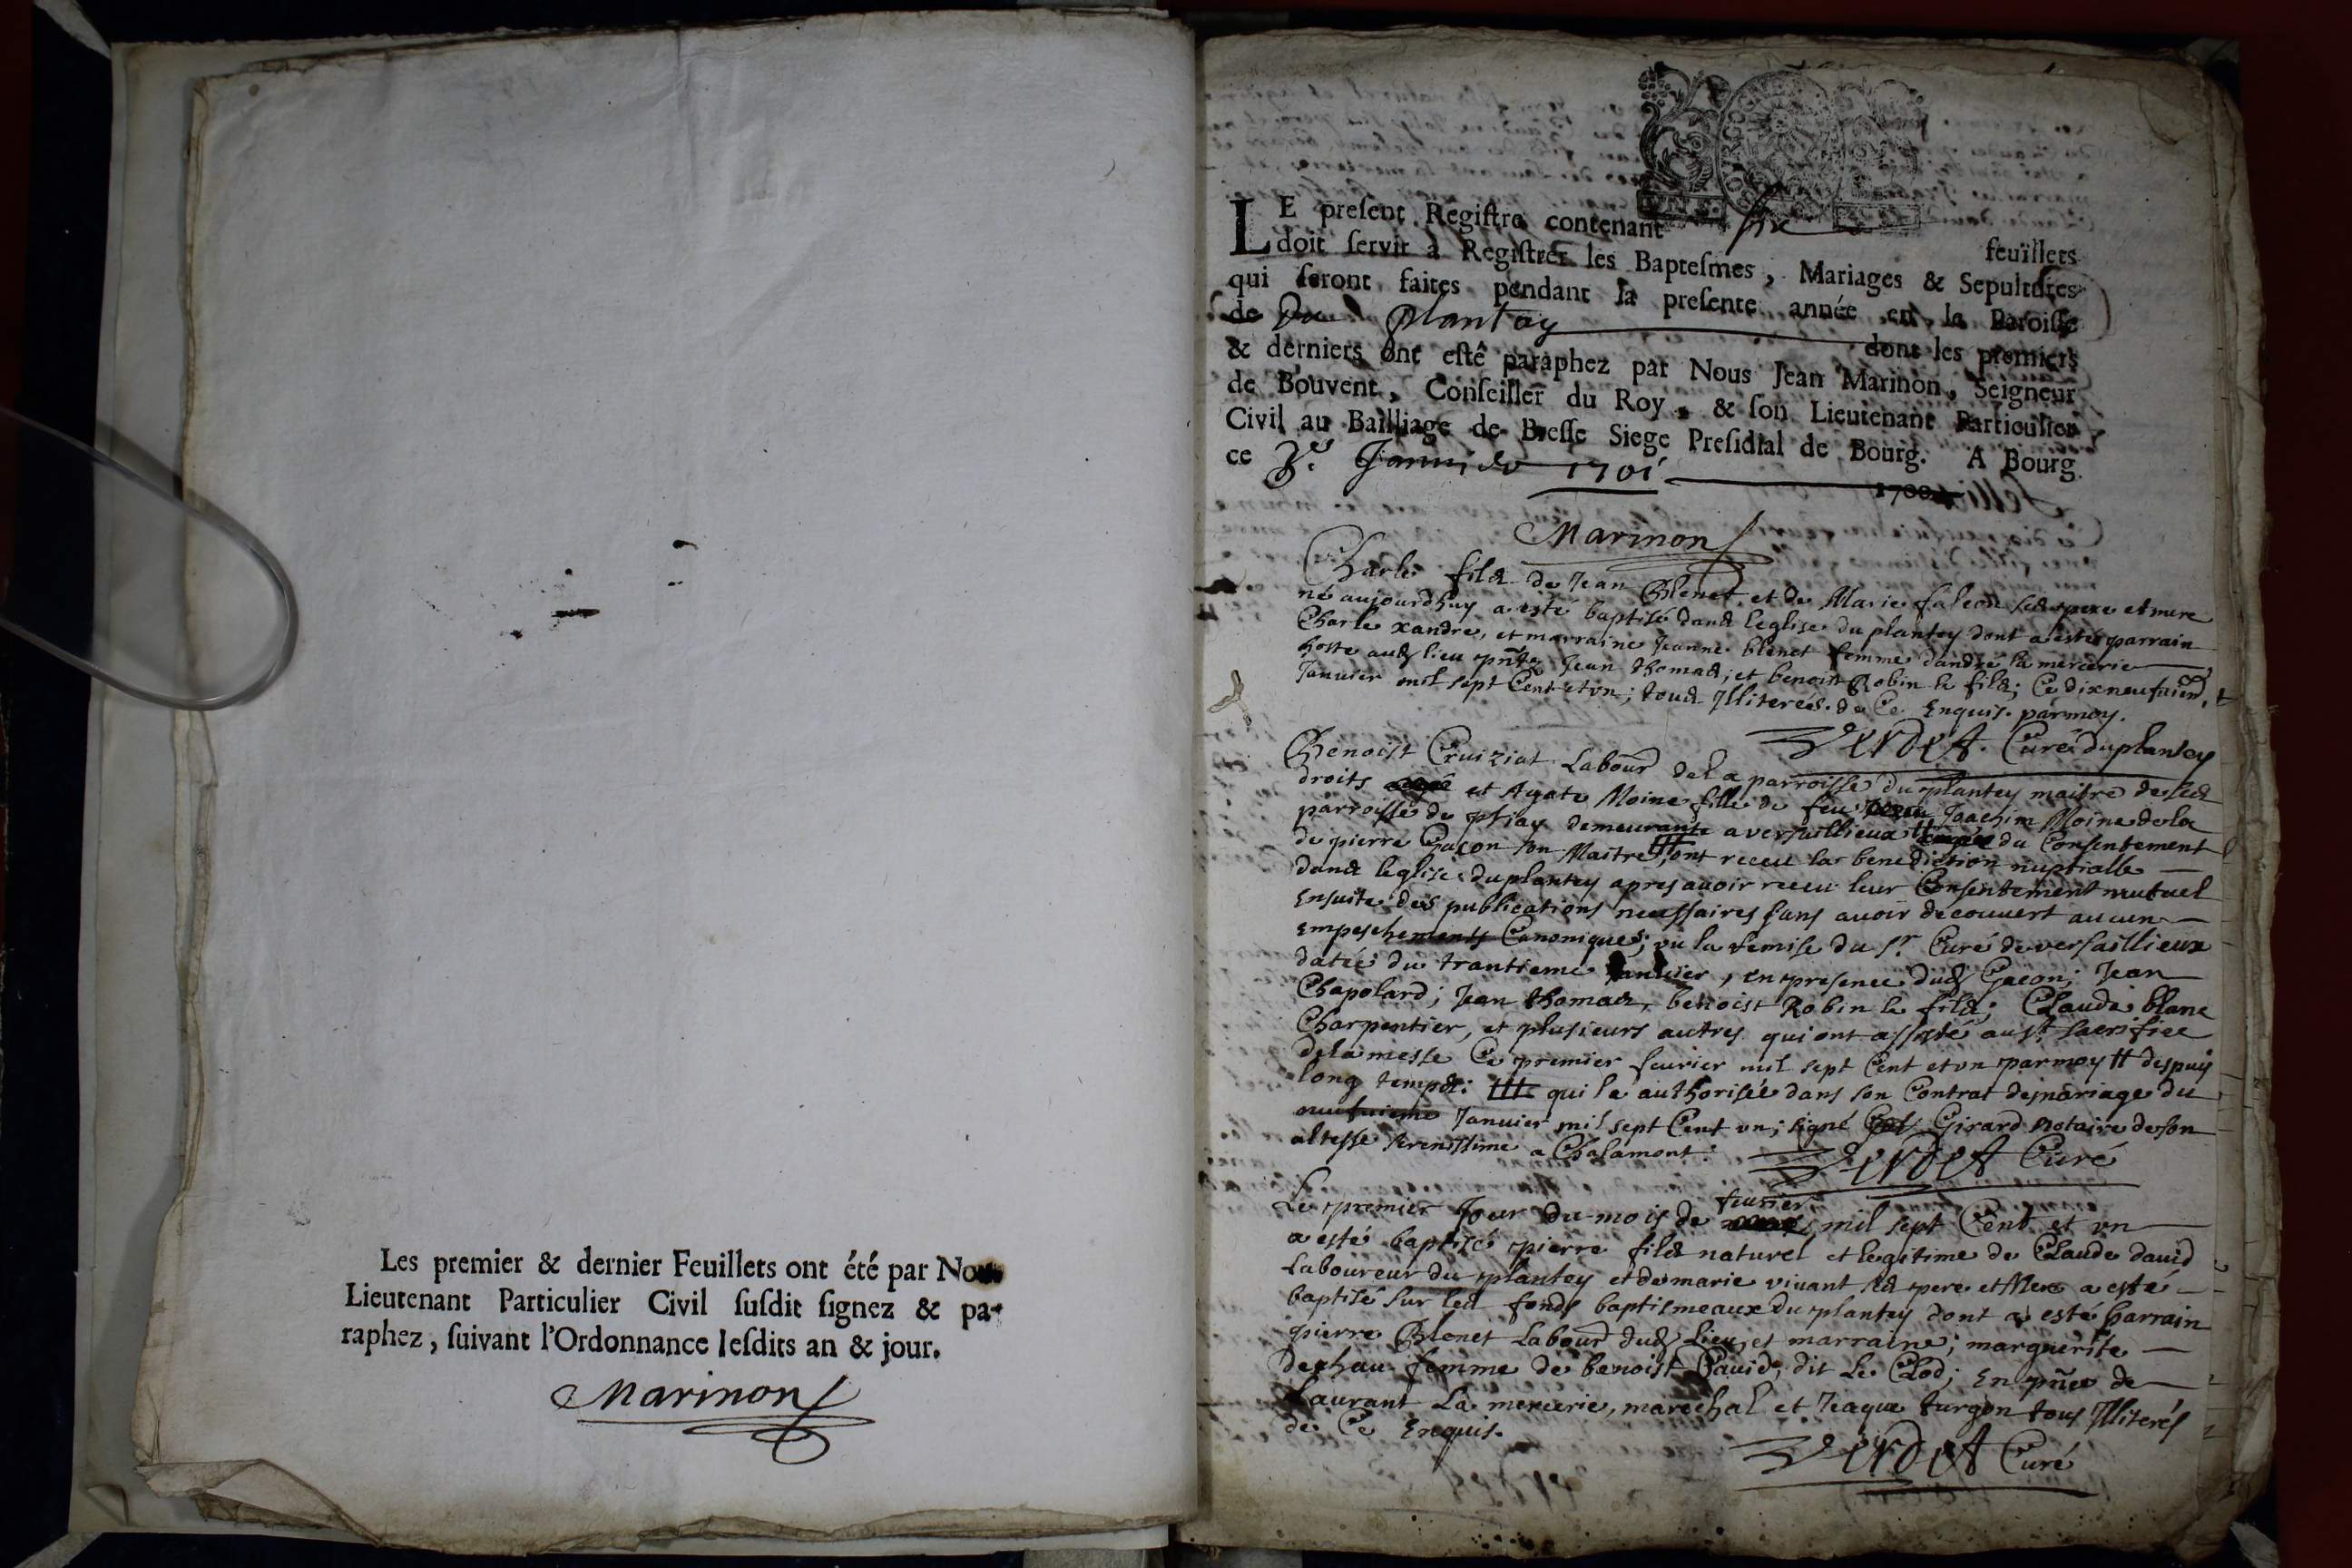 Les premier & dernier Feuillets ont été par Nous
Lieutenant Particulier Civil ſuſdit ſignez & pa-
raphez, ſuivant l'Ordonnance leſdits an & jour.
Marinon
LE preſent Regiſtre contenant six feuïllets
doit ſervir à Regiſtrer les Bapteſmes, Mariages & Sepultures
qui ſeront faites pendant la preſente année en la Paroiſſe
de Du plantay dont les premiers
& derniers ont eſtê paraphez par Nous Jean Marinon, Seigneur
de Bouvent, Conſeiller du Roy, & ſon Lieutenant Particulier
Civil au Bailliage de Breſſe Siege Preſidial de Bourg. A Bourg
ce 3e Janvier 1701 1700
Marinon
Charle fils de Jean Blenet et de Marie faleon ses pere et mere
né aujourdhuy a esté baptisé dans leglise du plantey dont a esté parrain
Charle xandre, et marraine Jeanne blenet femme dandré la mercerie
hoste aud lieu pnts Jean thomas; et benoist Robin le fils; Ce dixneufuieme
Januier mil sept Cent et vn; tous Illiterés de Ce Enquis par moy.
Verdet Curé du plantey
Benoist Cruiziat Labour de la parroisse du plantey maitre de ses
droits et Agate Moine fille de feu Joachim Moine de la
parroisse de demeurante a versaillieux tt du Consentement
de pierre Gacon son Maitre ttt ont receu la benediction nuptialle
dans leglise du plantey apres auoir receu leur Consentement mutuel
Ensuite des publications necessaires sans auoir decouuert aucun
Empeschements Canoniques; vu la remise du sr Curé de versaillieux
datée du trantieme Januier, en presence dud Gacon; Jean
Chapolard; Jean thomas, benoist Robin le fils; Claude blanc
Charpentier, et plusieurs autres qui ont assisté au st sacrifice
de la messe Ce premier feurier mil sept Cent et vn par moy tt despuis
long temps: ttt qui la authorisée dans son Contrat de mariage du
neufuieme Januier mil sept Cent vn; signé Girard Notaire de son
altesse serenissime a Chalamont.
Verdet Curé
Le premier Jour du mois de feurier mil sept Cent et vn
a esté baptisé pierre fils naturel et legitime de Claude dauid
Laboureur du plantey et de marie viuant ses pere et Mere a esté
baptisé sur les fonds baptismeaux du plantey dont a esté parrain
pierre Blenet Labour dud Lieu, et marraine; marguerite
dechau femme de benoist Dauid, dit Le Clod; En pnce de
Laurant La mercerie, marechal et Jeaque turgon tous Illiterés
de Ce Enquis.
Verdet Curé